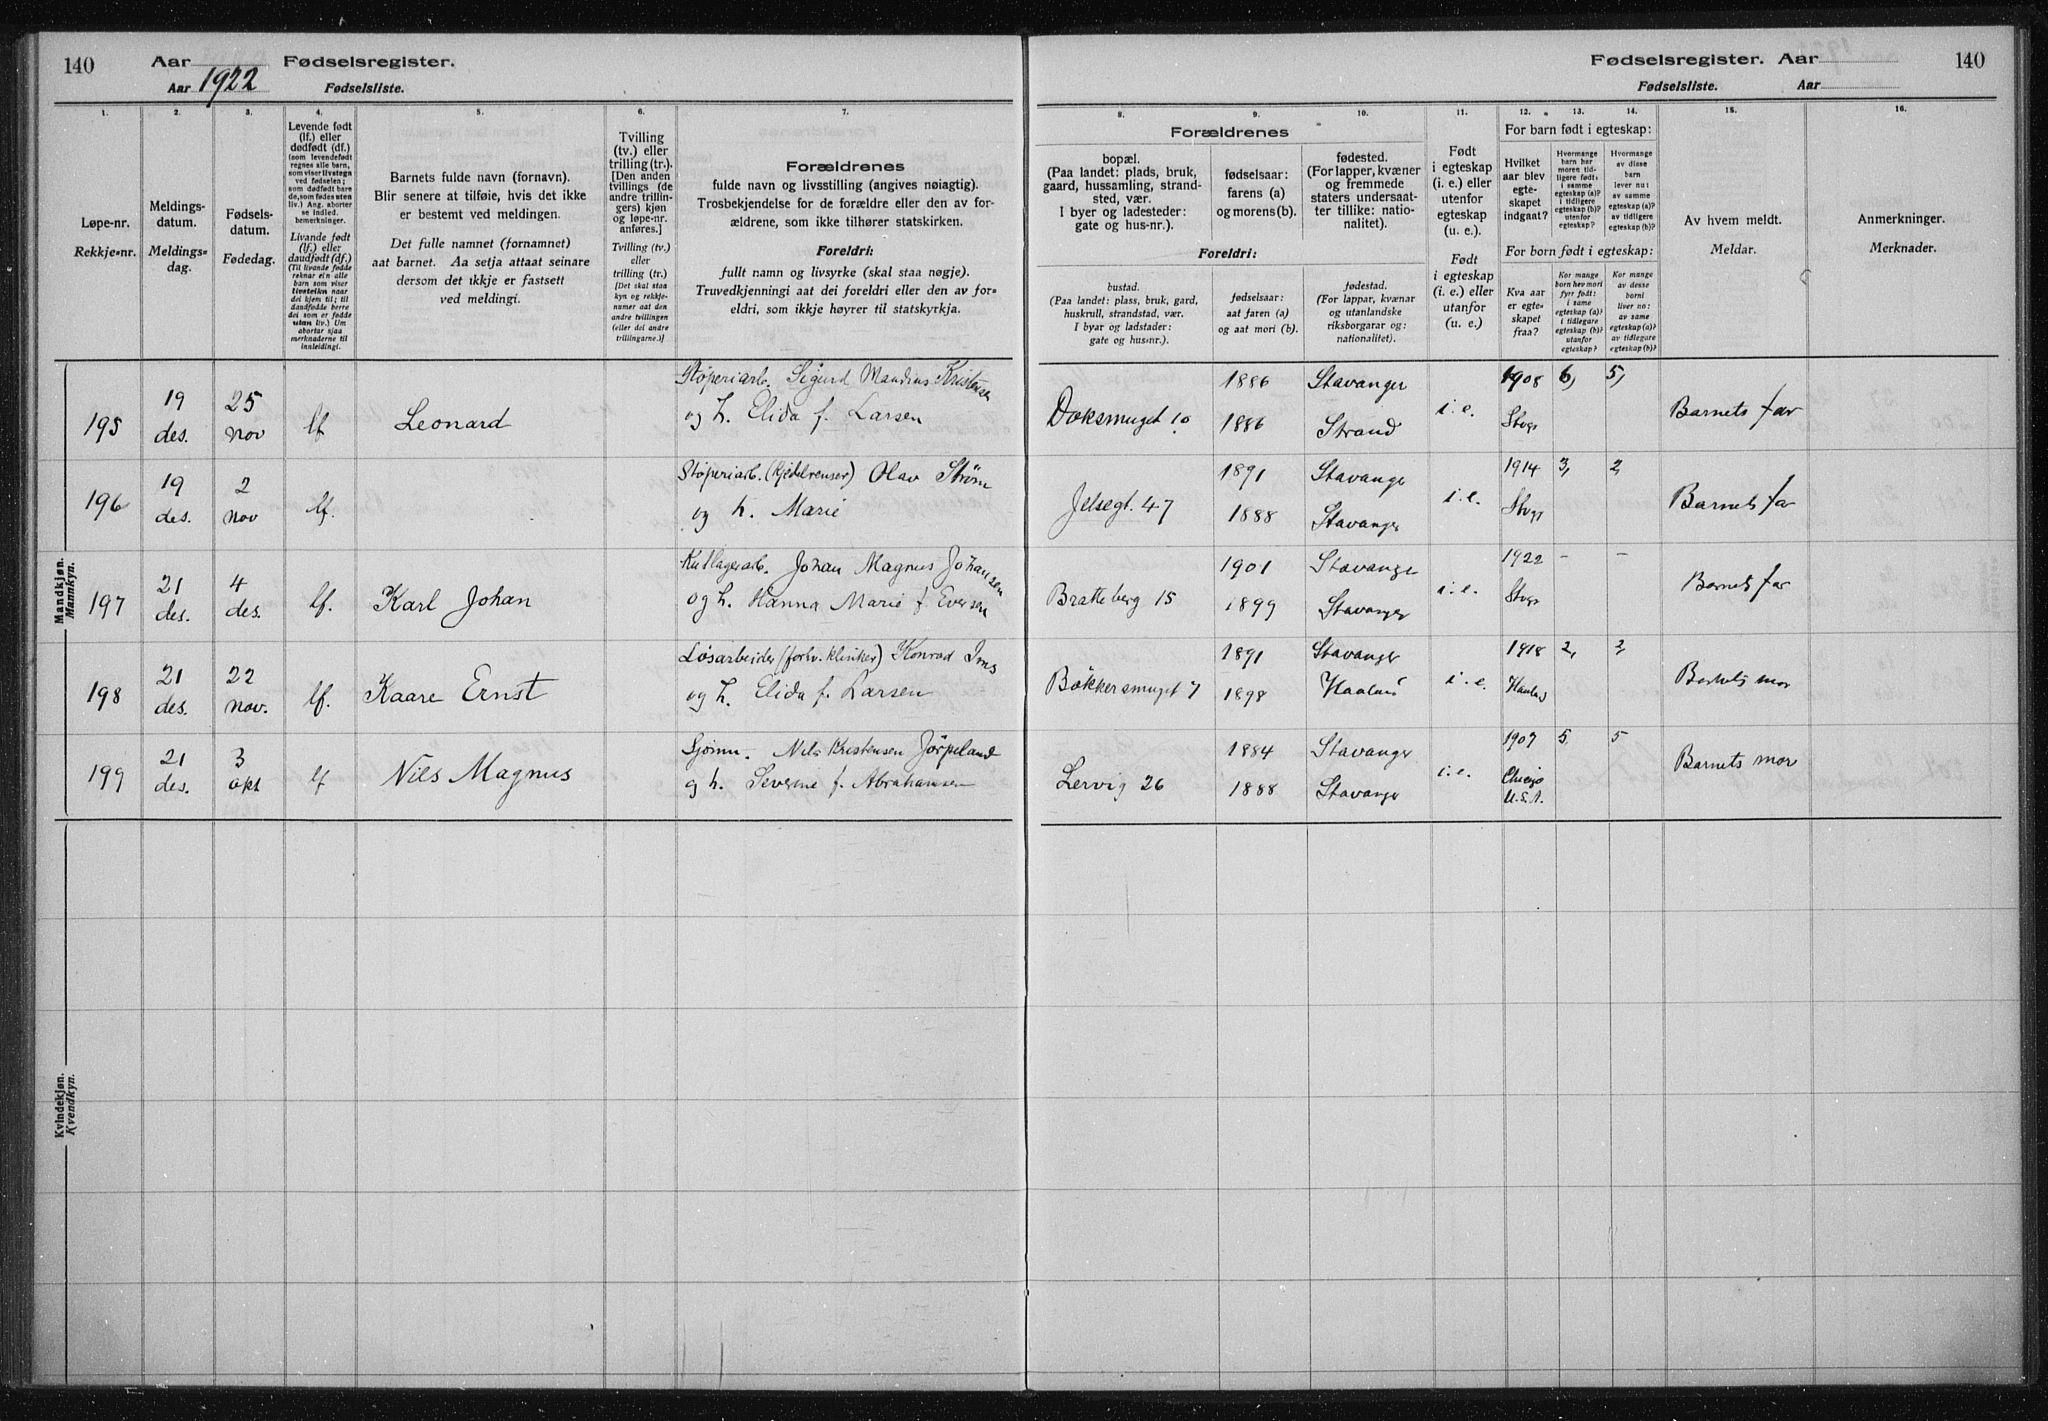 140
Aar
Fødselsregister.
Aar 1922
Fødselsliste.
1.
2.
3.
4.
5.
6.
7.
Løpe-nr.
Rekkje-nr.
Meldings-
datum.
Meldings-
dag.
Fødsels-
datum.
Fødedag.
Levende født
(lf.) eller
dødfødt (df.)
(som levendefødt
regnes alle barn,
som viser livstegn
ved fødselen;
som dødfødt bare
de, som fødes uten
liv.) Ang. aborter
se indled.
bemerkninger.
Livande født
(lf.) eller
daudfødt (df.)
(Til livande fødde
reknar ein alle
barn som viser
livsteikn naar
dei kjem til; til
daudfødde berre
dei som er fødde
utan liv.) Um
abortar sjaa
merknaderne til
innleidingi.
Barnets fulde navn (fornavn).
Blir senere at tilføie, hvis det ikke
er bestemt ved meldingen.
Det fulle namnet (fornamnet)
aat barnet. Aa setja attaat seinare
dersom det ikkje er fastsett
ved meldingi.
Tvilling
(tv.) eller
trilling (tr.).
[Den anden
tvillings (de
andre trillin-
gers) kjøn
og løpe-nr.
anføres.]
Tvilling (tv.)
eller
trilling (tr.)
[Det skal staa
kyn og rekkje-
numer aat den
andre tvillingen
(eller dei andre
trillingarne.)]
Forældrenes
fulde navn og livsstilling (angives nøiagtig).
Trosbekjendelse for de forældre eller den av for-
ældrene, som ikke tilhører statskirken.
Foreldri:
fullt namn og livsyrke (skal staa nøgje).
Truvedkjenningi aat dei foreldri eller den av for-
eldri, som ikkje høyrer til statskyrkja.
Mandkjøn.
Mannkyn.
195 19 des. 25 nov lf Leonard Støperiarb. Sigurd Mandius Kristensen
og h. Elida f. Larsen
196 19 des. 2 nov lf. Støperiarb. (kjedelrenser) Olav Strøm
og h. Marie
197 21 des. 4 des. lf. Karl Johan Johan Magnus Johansen
og h. Hanna Marie f. Eversen
198 21 des. 22 nov. lf. Kaare Ernst Løsarbeider (forhv. klinker) Konrad Ims
og h. Elida f. Larsen
199 21 des. 3 okt lf Nils Magnus Sjömn. Nils Kristensen Jørpeland
og h. Severine f. Abrahamsen
Kvindekjøn.
Kvendkyn.
Fødselsregister. Aar
140
Fødselsliste.
Aar
8.
9.
10.
11.
12.
13.
14.
15.
16.
Forældrenes
bopæl.
(Paa landet: plads, bruk,
gaard, hussamling, strand-
sted, vær.
I byer og ladesteder:
gate og hus-nr.).
fødselsaar:
farens (a)
og morens (b).
fødested.
(For lapper, kvæner
og fremmede
staters undersaat-
ter tillike: natio-
nalitet).
Foreldri:
bustad.
(Paa landet: plass, bruk, gard,
huskrull, strandstad, vær.
I byar og ladstader:
gate og hus-nr.).
fødselsaar:
aat faren (a)
og aat mori (b).
fødestad.
(For lappar, kvænar
og utanlandske
riksborgarar og:
nationalitet).
Født
i egteskap
(i. e.) eller
utenfor
egteskap
(u. e.).
Født
i egteskap
(i. e.) eller
utanfor
(u. e.)
For barn født i egteskap:
Hvilket
aar blev
egte-
skapet
indgaat?
Hvormange
barn har
moren tid-
ligere født:
i samme
egteskap (a)?
i tidligere
egteskap (b)?
utenfor
egteskap?
Hvormange
av disse
barn
lever nu:
av samme
egteskap (a)?
av tidligere
egteskap (b)?
For born født i egteskap:
Kva aar
er egte-
skapet
fraa?
Kor mange
born hev mori
fyrr født:
i same
egteskap (a)?
i tidlegare
egteskap (b)?
utanfor
egteskap?
Kor mange
av desse
borni
liver no:
av same
egteskap (a)?
av tidlegare
egteskap (b)?
Av hvem meldt.
Meldar.
Anmerkninger.
Merknader.
Doksmuget 10 1886 Stavanger i. e. 1908 6, 5, Barnets far
1886 Strand Stvgr
Jelsegt. 47 1891 Stavanger i. e. 1914 3, 2, Barnets far
1888 Stavanger Stvgr
Bratteberg 15 1901 Stavanger i. e. 1922 - - Barnets far
1899 Stavanger Stvgr
Bökkersmuget 7 1891 Stavanger i. e. 1918 2, 2, Barnets mor
1898 Haaland Haaland
Lervig 26 1884 Stavanger i. e. 1907 5 5 Barnets mor
1888 Stavanger Chicago
U.S.A.